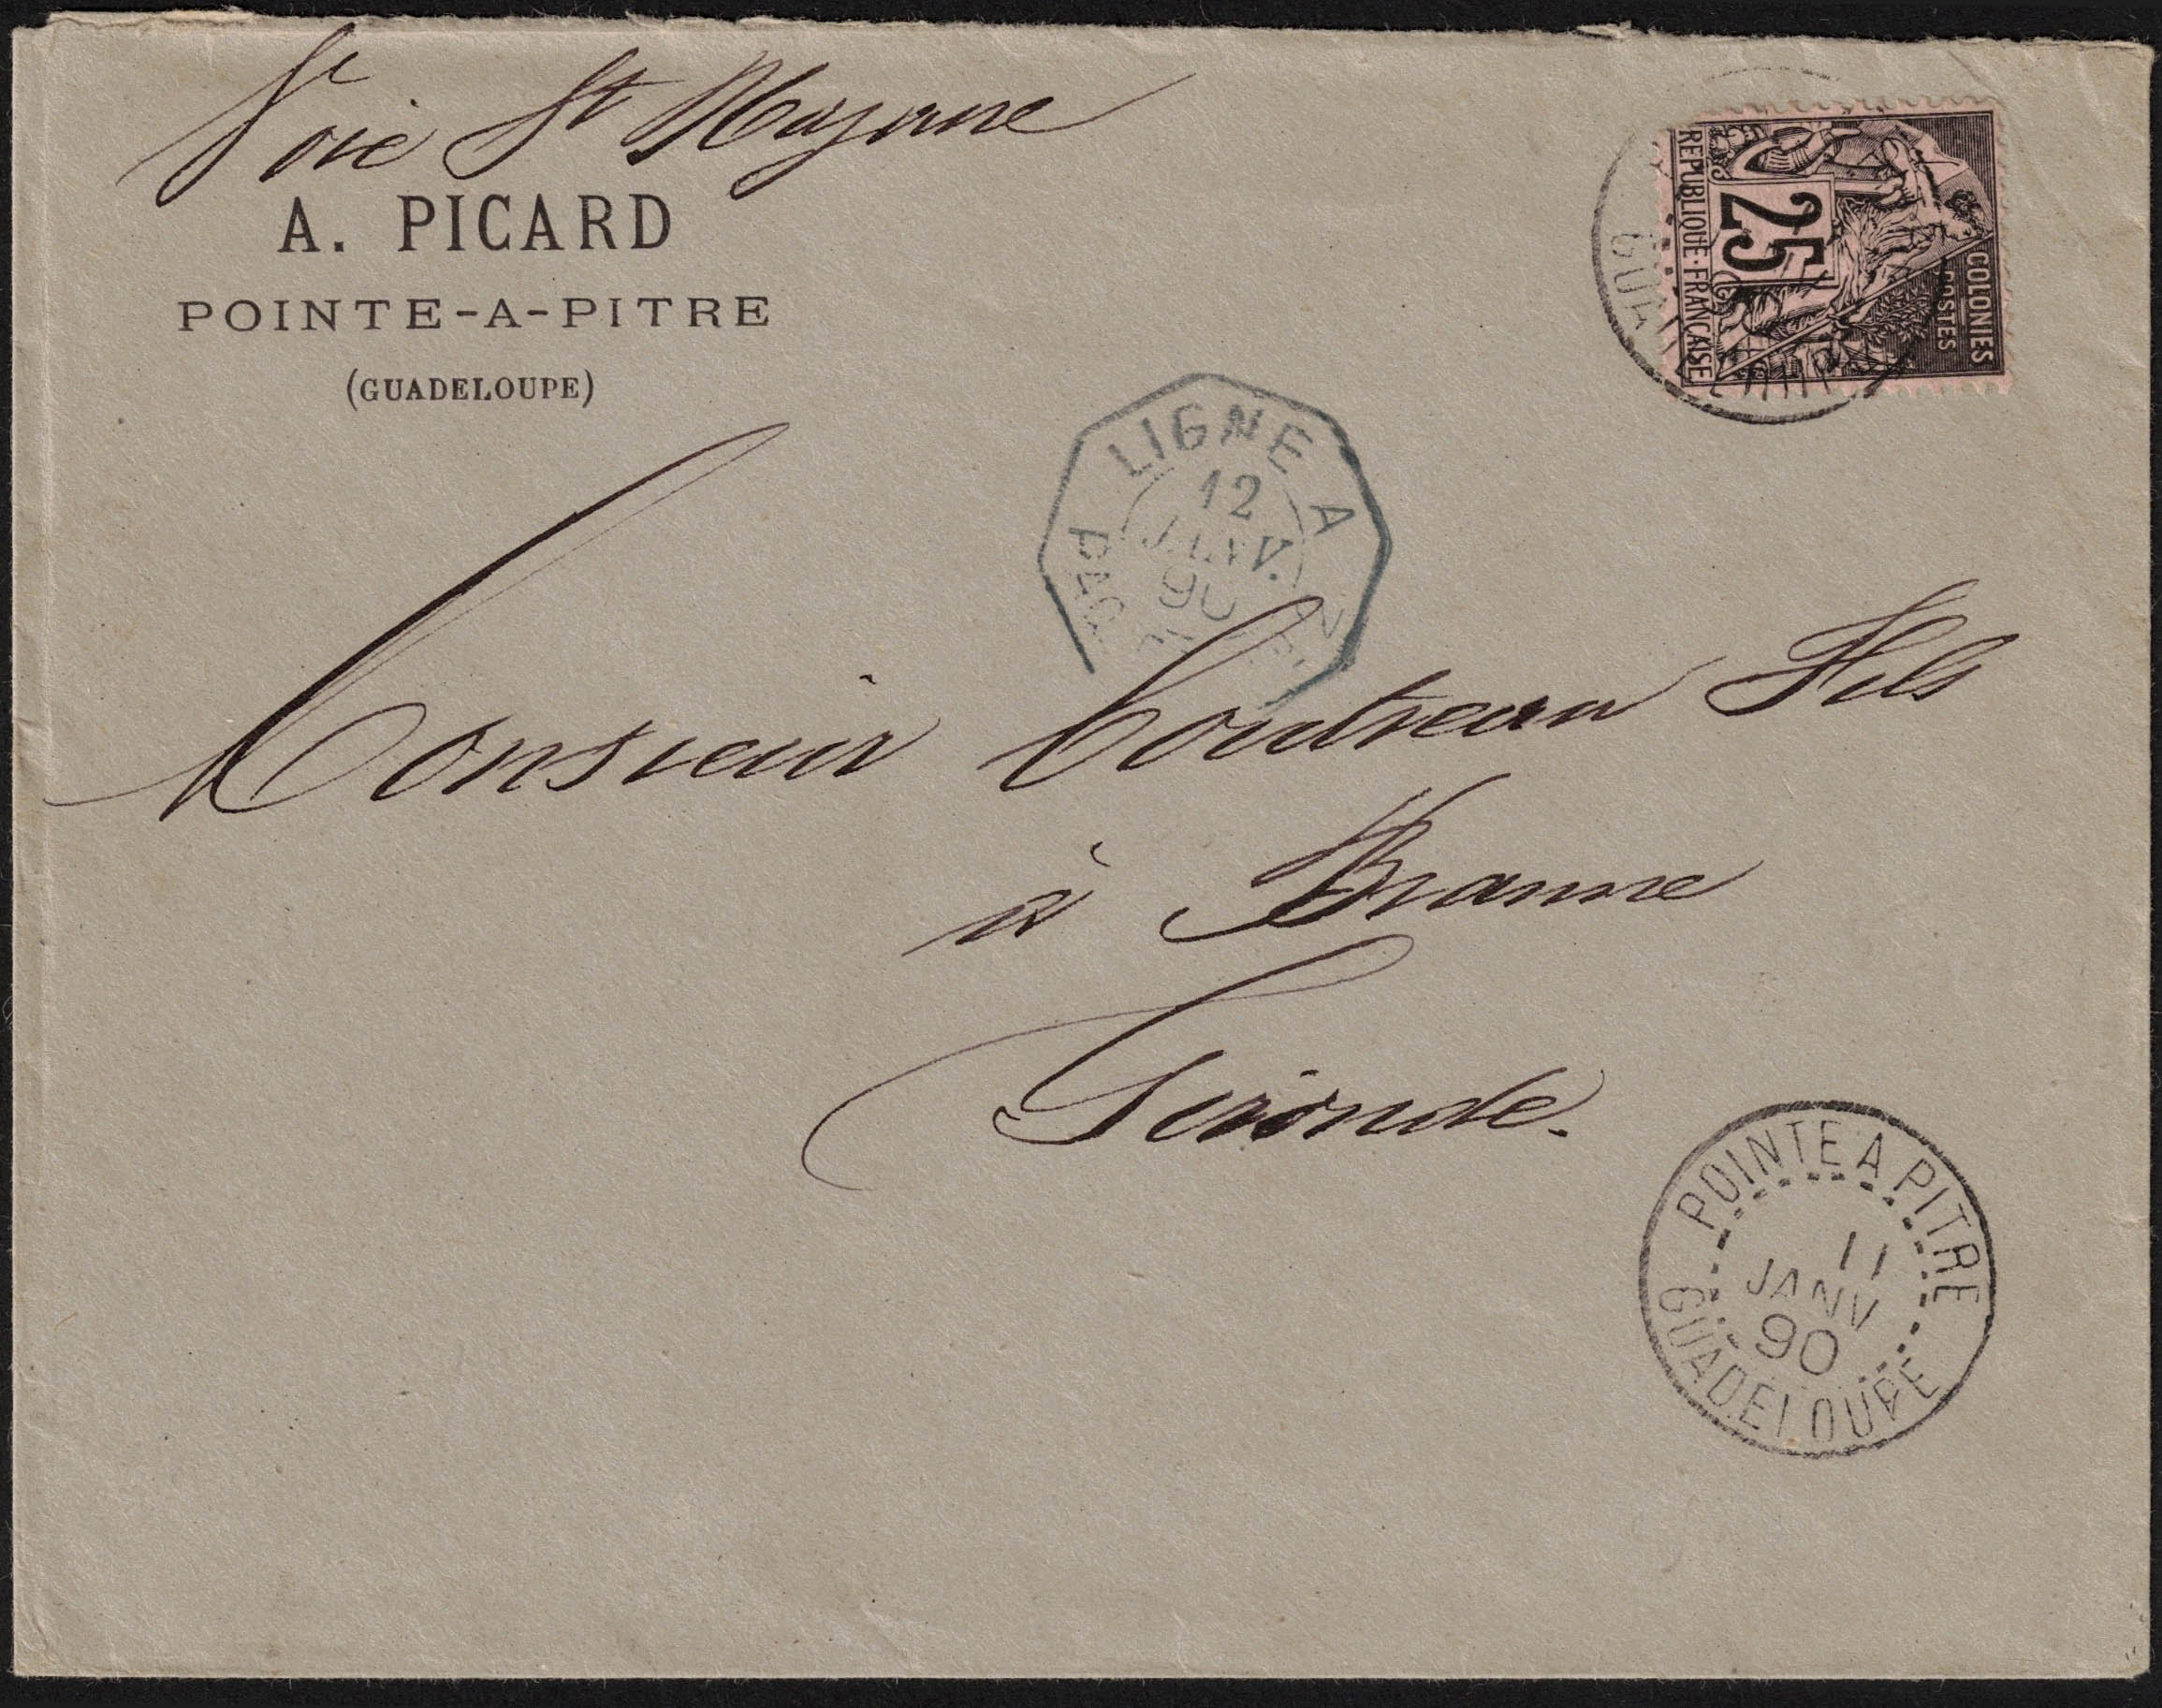 Voie St Nazaire
A. PICARD
POINTE-A-PITRE
(GUADELOUPE)
COLONIES
POSTES
25
REPUBLIQUE·FRANCAISE
GUADELOUPE
LIGNE A
12
JANV.
90
PAQ. FR. N
Monsieur Coutreau Fils
à Branne
Gironde.
POINTE A PITRE
11
JANV
90
GUADELOUPE